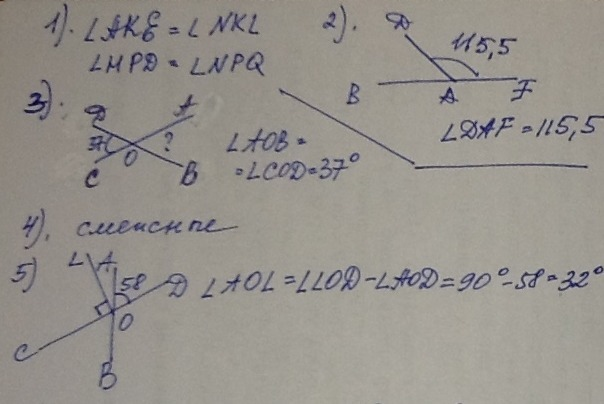 1). ∠AKE = ∠NKL
∠MPD = ∠NPQ
2).
D
115,5
B A F
∠DAF = 115,5
3).
D A
37 O ?
C B
∠AOB =
= ∠COD = 37°
4). смежные
5)
L A
58 D
O
C
B
∠AOL = ∠LOD - ∠AOD = 90° - 58 = 32°